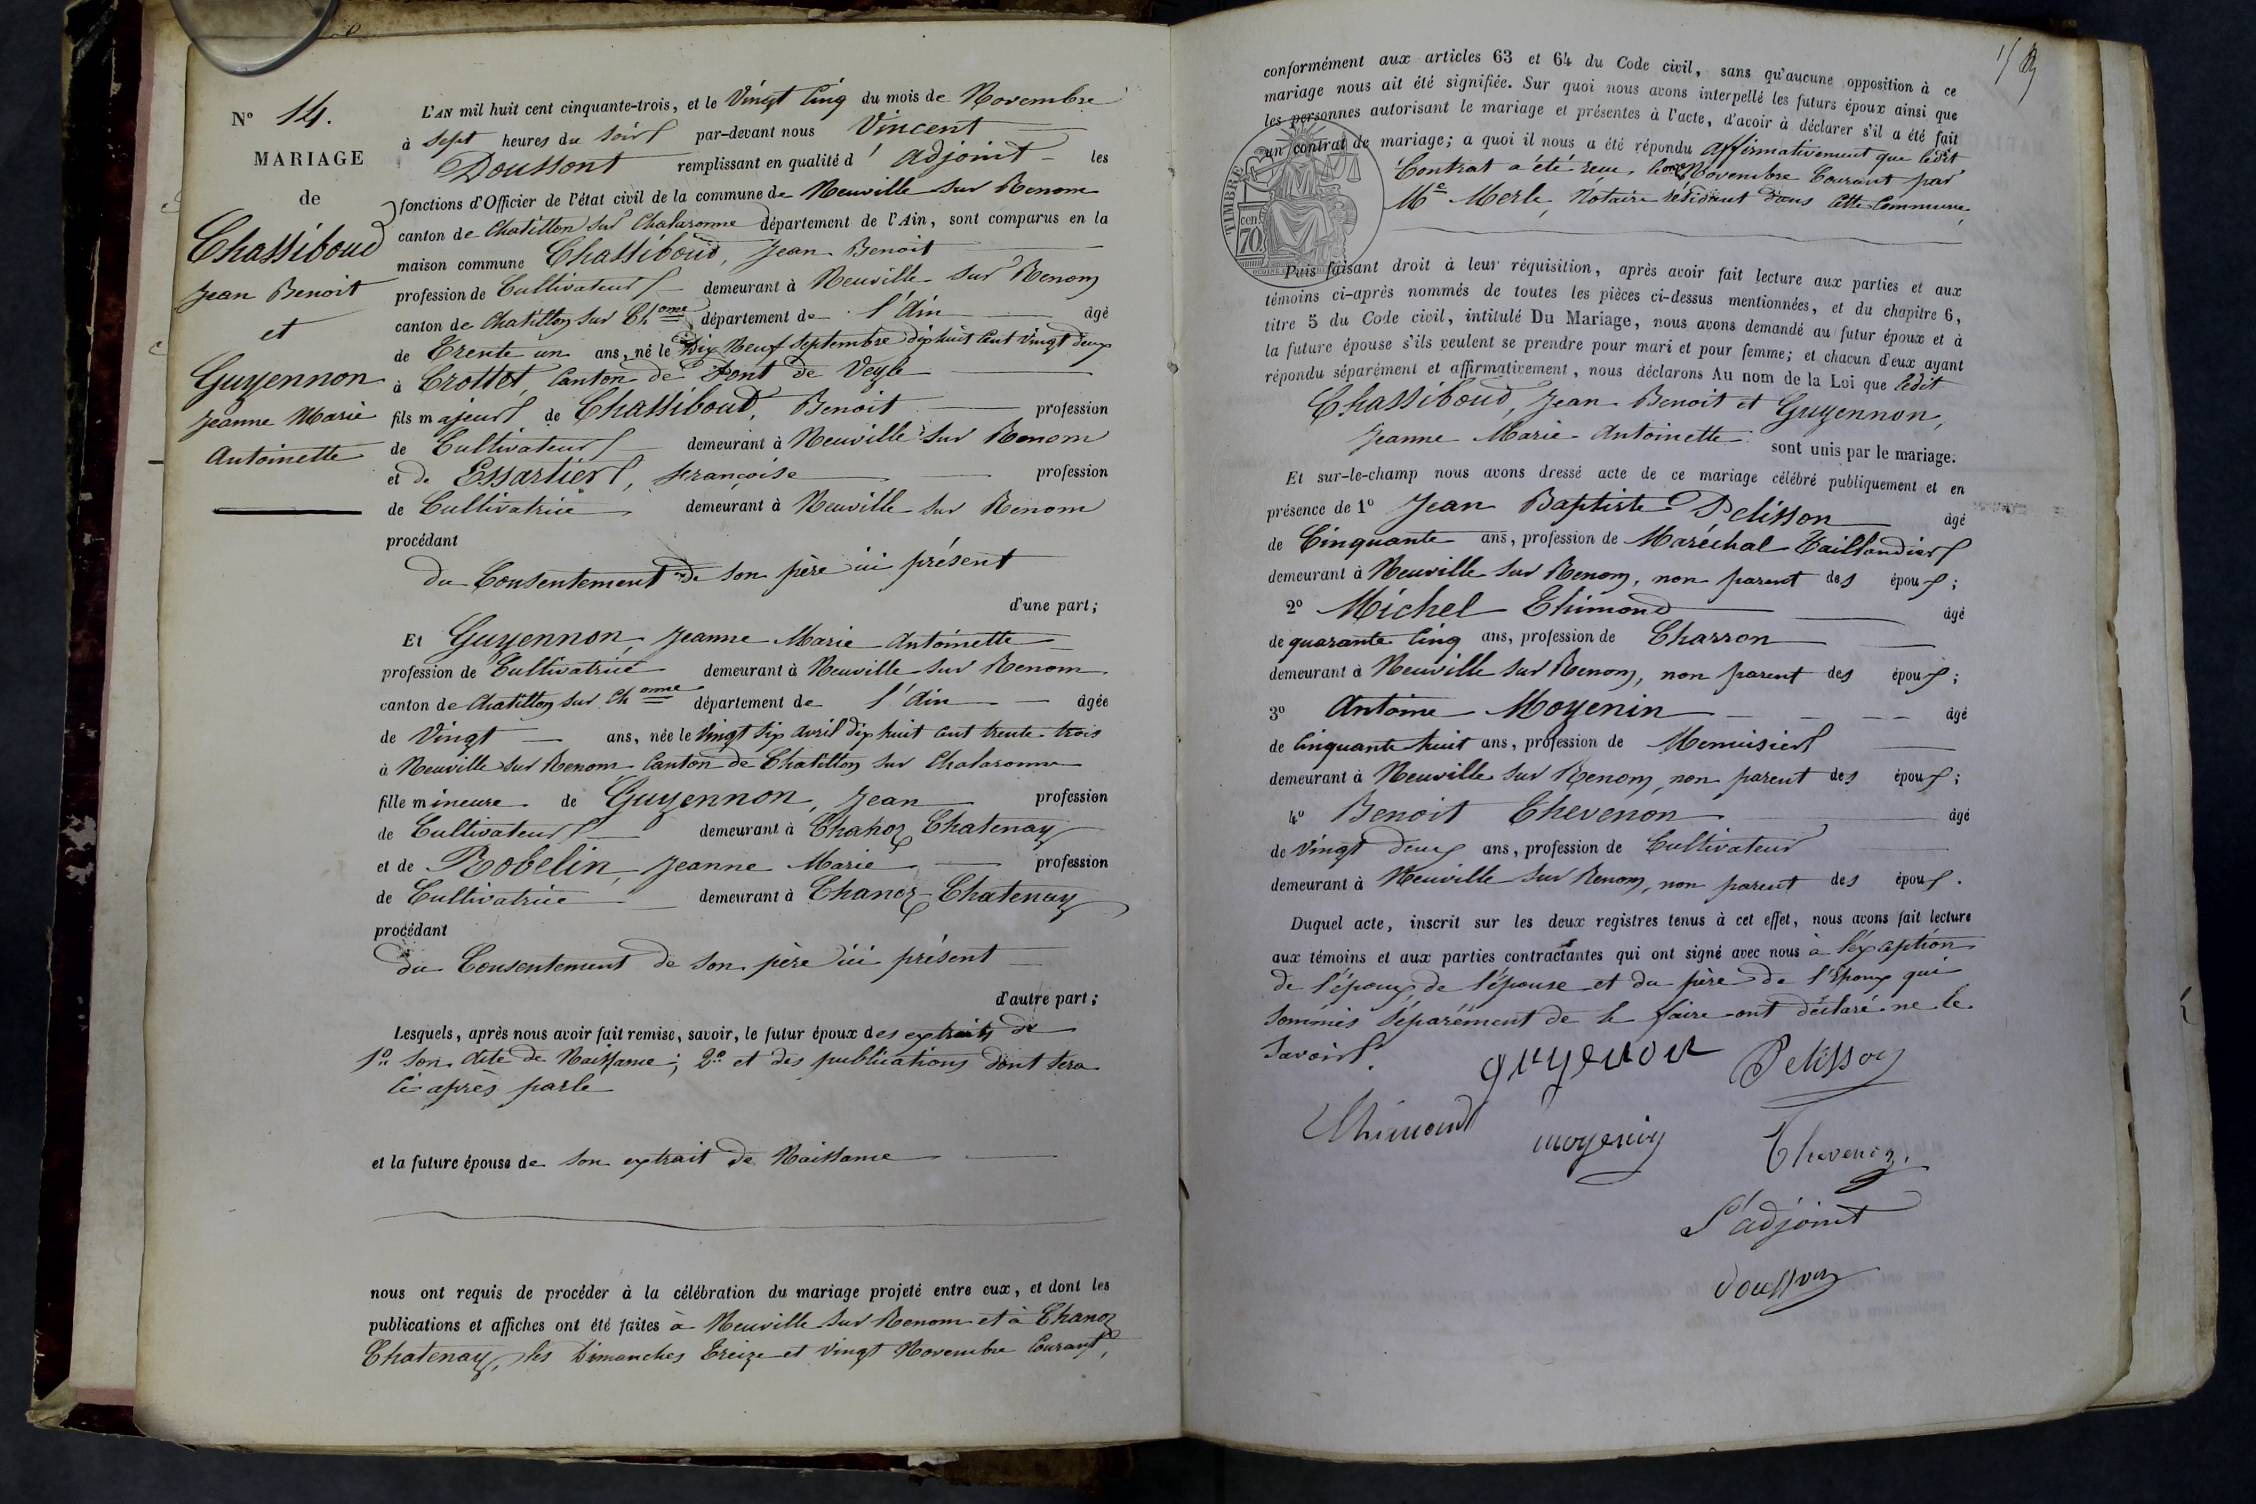 Nº 14.
MARIAGE
de
Chassiboud
Jean Benoit
et
Guyennon
Jeanne Marie
Antoinette
L'AN mil huit cent cinquante-trois, et le Vingt Cinq du mois de Novembre
à sept heures du soir par-devant nous Vincent
Doussont remplissant en qualité d'adjoint les
fonctions d'Officier de l'état civil de la commune de Neuville sur Renom
canton de Chatillon sur Chalaronne département de l'Ain, sont comparus en la
maison commune Chassiboud, Jean Benoit
profession de Cultivateur demeurant à Neuville sur Renom
canton de Chatillon sur Chonne département de l'Ain âgé
de Trente un ans, né le Dix Neuf Septembre dix huit Cent Vingt deux
à Crottet, Canton de Pont de Veyle
fils majeur de Chassiboud, Benoit profession
de Cultivateur demeurant à Neuville sur Renom
et de Essartier, françoise profession
de Cultivatrice demeurant à Neuville sur Renom
procédant
du Consentement de son père ici présent
d'une part;
Et Guyennon, Jeanne Marie Antoinette
profession de Cultivatrice demeurant à Neuville sur Renom
canton de Chatillon sur Chonne département de l'Ain âgée
de Vingt ans, née le Vingt Six avril dix huit cent trente trois
à Neuville sur Renom Canton de Chatillon sur Chalaronne
fille mineure de Guyennon, Jean profession
de Cultivateur demeurant à Chanoz Chatenay
et de Robelin, Jeanne Marie profession
de Cultivatrice demeurant à Chanoz Chatenay
procédant
du Consentement de son père ici présent
d'autre part;
Lesquels, après nous avoir fait remise, savoir, le futur époux des extraits de
1º son dite de Naissance; 2º et des publications dont sera
Ci-après parlé
et la future épouse de son extrait de Naissance
nous ont requis de procéder à la célébration du mariage projeté entre eux, et dont les
publications et affiches ont été faites à Neuville sur Renom et à Chanoz
Chatenay, les Dimanches Treize et Vingt Novembre Courant,
conformément aux articles 63 et 64 du Code civil, sans qu'aucune opposition à ce
mariage nous ait été signifiée. Sur quoi nous avons interpellé les futurs époux ainsi que
les personnes autorisant le mariage et présentes à l'acte, d'avoir à déclarer s'il a été fait
un contrat de mariage; à quoi il nous a été répondu affirmativement que ledit
Contrat a été reçu, le onze Novembre Courant par
Me Merle, Notaire résidant dans cette Commune,
TIMBRE
cen
70
Puis faisant droit à leur réquisition, après avoir fait lecture aux parties et aux
témoins ci-après nommés de toutes les pièces ci-dessus mentionnées, et du chapitre 6,
titre 5 du Code civil, intitulé Du Mariage, nous avons demandé au futur époux et à
la future épouse s'ils veulent se prendre pour mari et pour femme; et chacun d'eux ayant
répondu séparément et affirmativement, nous déclarons Au nom de la Loi que ledit
Chassiboud, Jean Benoit et Guyennon,
Jeanne Marie Antoinette sont unis par le mariage.
Et sur-le-champ nous avons dressé acte de ce mariage célébré publiquement et en
présence de 1º Jean Baptiste Pelisson âgé
de Cinquante ans, profession de Maréchal Taillandier
demeurant à Neuville sur Renom, non parent des époux;
2º Michel Thimond âgé
de quarante Cinq ans, profession de Charron
demeurant à Neuville sur Renom, non parent des époux;
3º Antoine Moyenin âgé
de Cinquante huit ans, profession de Menuisier
demeurant à Neuville sur Renom, non parent des époux;
4º Benoit Thevenon âgé
de Vingt deux ans, profession de Cultivateur
demeurant à Neuville sur Renom, non parent des époux.
Duquel acte, inscrit sur les deux registres tenus à cet effet, nous avons fait lecture
aux témoins et aux parties contractantes qui ont signé avec nous à l'exception
de l'époux, de l'épouse et du père de l'Epoux qui
sommés séparément de le faire ont déclaré ne le
savoir.
guyenon Pelisson
Thimond moyenin Thevenon.
L'adjoint
Dousson